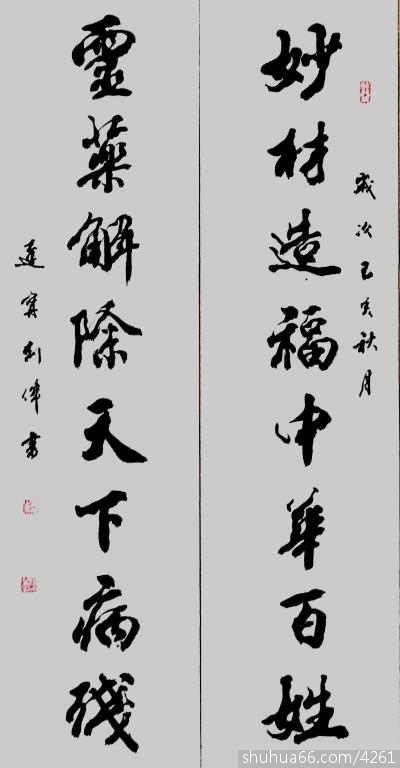 歲次己亥秋月
妙材造福中華百姓
靈藥解除天下病殘
偉書
shuhua66.com/4261